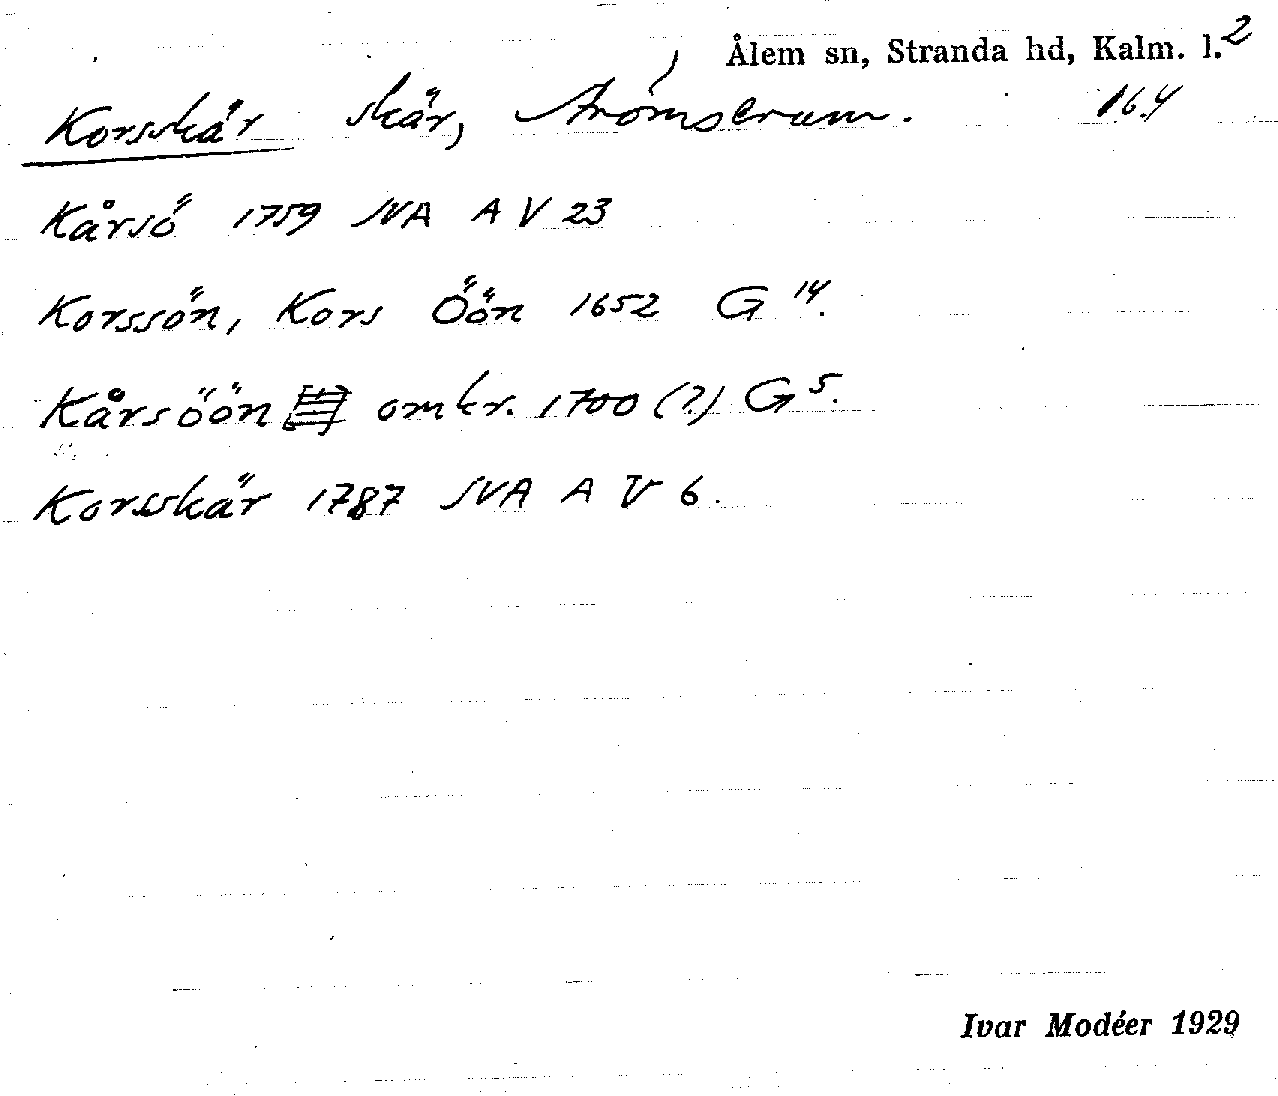 Ålem sn, Stranda hd, Kalm. l. 2
Korsskär skär, Strömserum. 16.4
Kårsö 1759 SVA A V 23
Korssön, Kors Öön 1652 G 14.
Kårsöön omkr. 1700 (?) G 5.
Korsskär 1787 SVA A V 6.
Ivar Modéer 1929